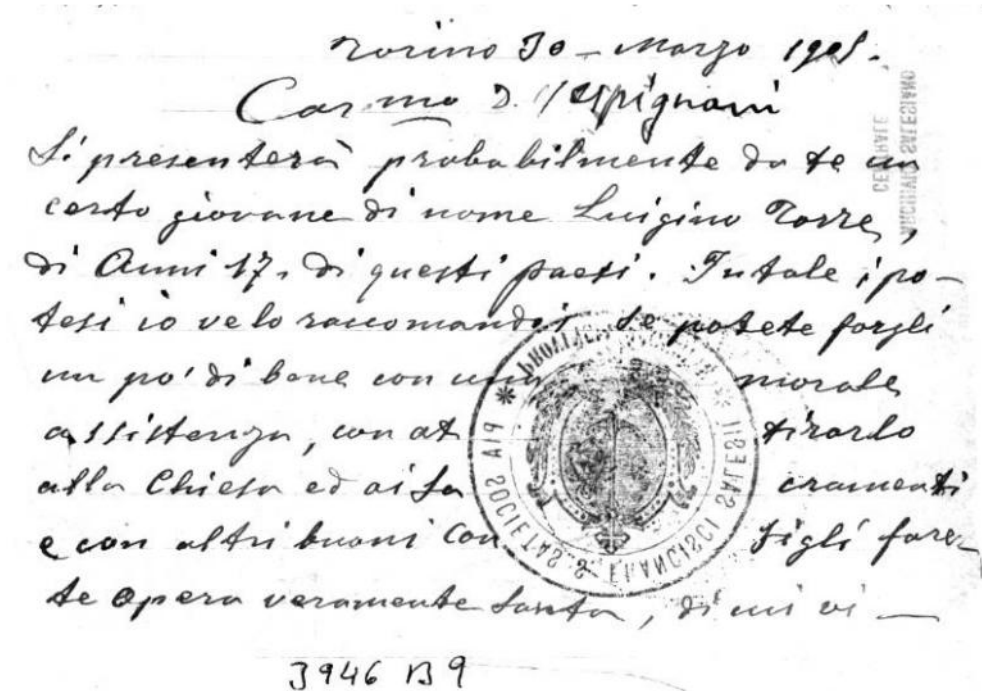 Torino 30 - Marzo 1905.
Car.mo D. Vespignani
Si presenterà probabilmente da te un
certo giovane di nome Luigino Torre,
di Anni 17, di questi paesi. In tale ipo-
tesi io ve lo raccomando; se potete fargli
un po' di bene con una morale
assistenza, con at tirarlo
alla Chiesa ed ai Sa cramenti
e con altri buoni Con sigli fare-
te opera veramente santa, di cui vi —
PIA SOCIETAS S. FRANCISCI SALESII
CENTRALE
ARCHIVIO SALESIANO
3946 B9